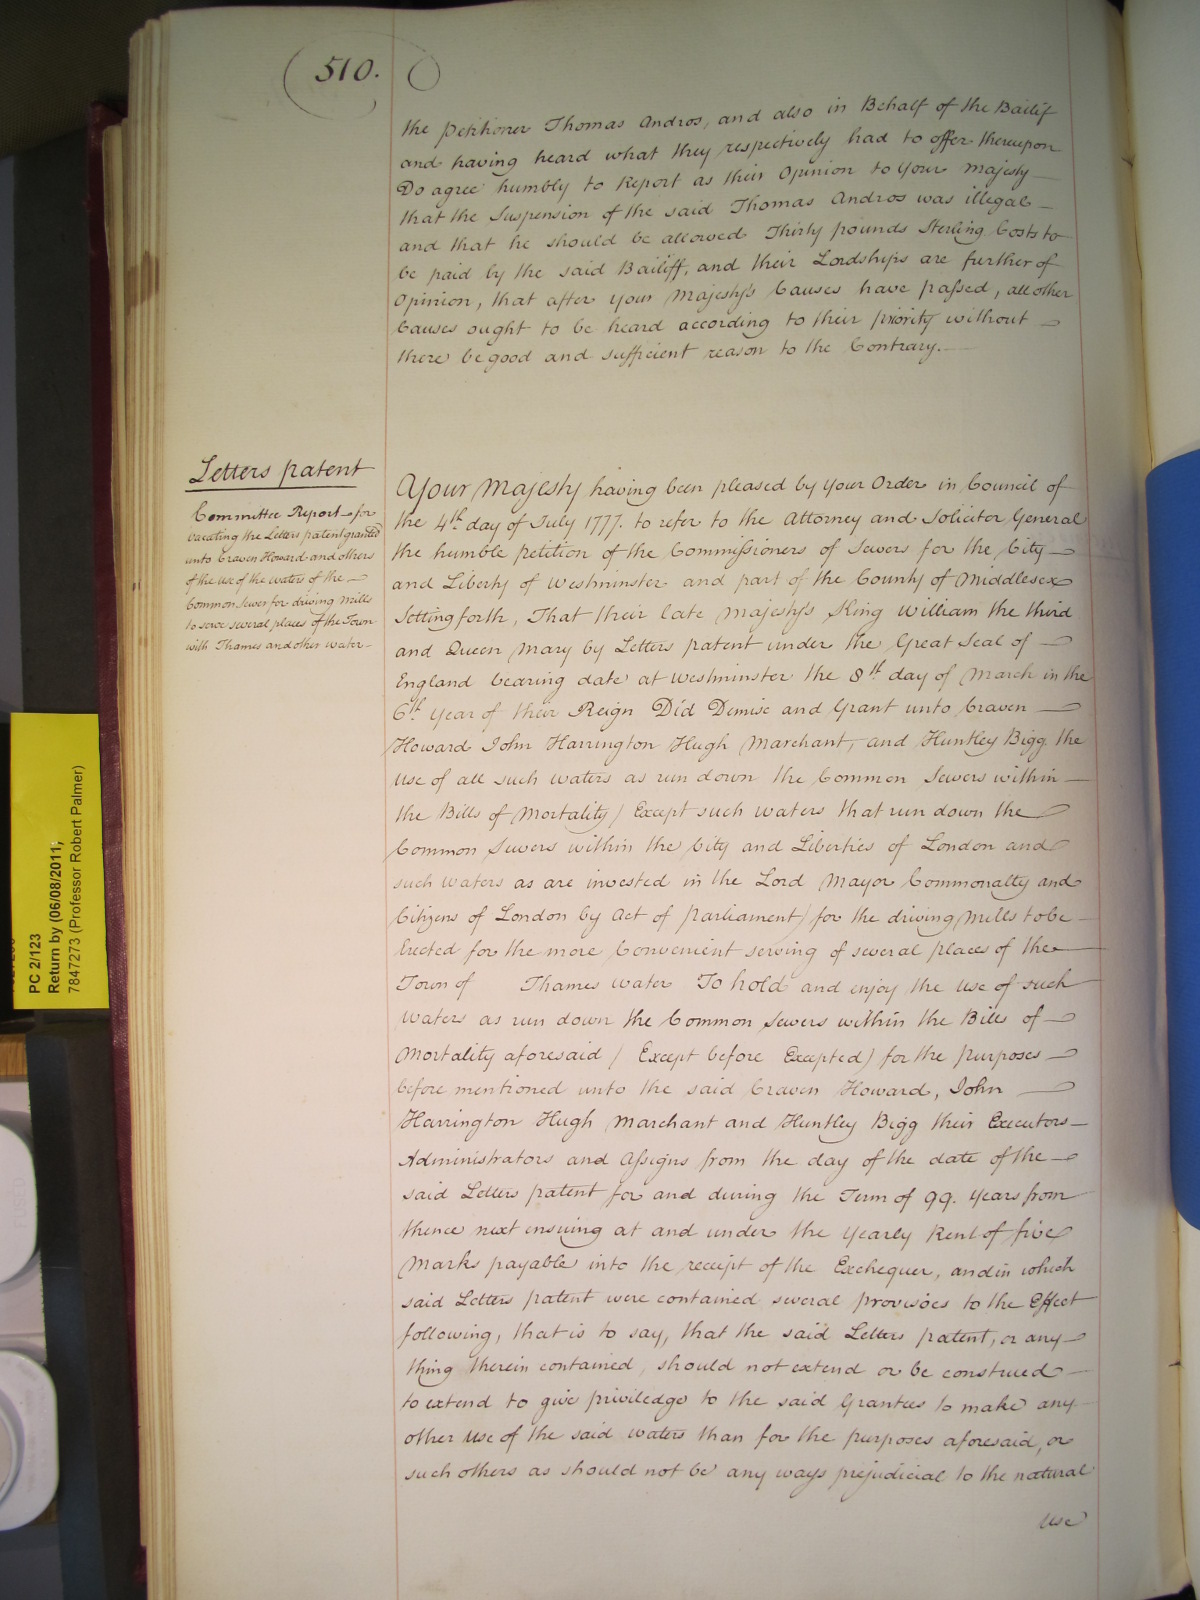 510.
the petitioner Thomas Andros, and also in Behalf of the Bailif
and having heard what they respectively had to offer thereupon
Do agree humbly to Report as their Opinion to Your Majesty
that the Suspension of the said Thomas Andros was illegal
and that he should be allowed Thirty pounds Sterling Costs to
be paid by the said Bailiff, and their Lordships are further of
Opinion, that after your Majesty's Causes have passed, all other
Causes ought to be heard according to their priority without
there be good and sufficient reason to the Contrary.
Letters patent
Committee Report for
vacating the Letters patent granted
unto Craven Howard and others
of the use of the waters of the
Common Sewer for driving Mills
to serve several places of the Town
with Thames and other water
Your Majesty having been pleased by Your Order in Council of
the 4th day of July 1777. to refer to the Attorney and Solicitor General
the humble petition of the Commissioners of Sewers for the City
and Liberty of Westminster and part of the County of Middlesex
Setting forth, That their late Majesty's King William the third
and Queen Mary by Letters patent under the Great Seal of
England bearing date at Westminster the 8th day of March in the
6th Year of their Reign Did Demise and Grant unto Craven
Howard John Harrington Hugh Marchant, and Huntley Bigg the
use of all such waters as run down the Common Sewers within
the Bills of Mortality (Except such waters that run down the
Common Sewers within the City and Liberties of London and
such waters as are invested in the Lord Mayor Commonalty and
Citizens of London by Act of parliament) for the driving Mills to be
Erected for the more Convenient serving of several places of the
Town of Thames water To hold and enjoy the use of such
waters as run down the Common Sewers within the Bills of
Mortality aforesaid (Except before Excepted) for the purposes
before mentioned unto the said Craven Howard, John
Harrington Hugh Marchant and Huntley Bigg their Executors
Administrators and Assigns from the day of the date of the
said Letters patent for and during the Term of 99. Years from
thence next ensuing at and under the Yearly Rent of five
Marks payable into the receipt of the Exchequer, and in which
said Letters patent were contained several provisoes to the Effect
following, that is to say, that the said Letters patent, or any
thing therein contained, should not extend or be construed
to extend to give priviledge to the said Grantees to make any
other use of the said waters than for the purposes aforesaid, or
such others as should not be any ways prejudicial to the natural
use
PC 2/123
Return by (06/08/2011;
7847273 (Professor Robert Palmer)